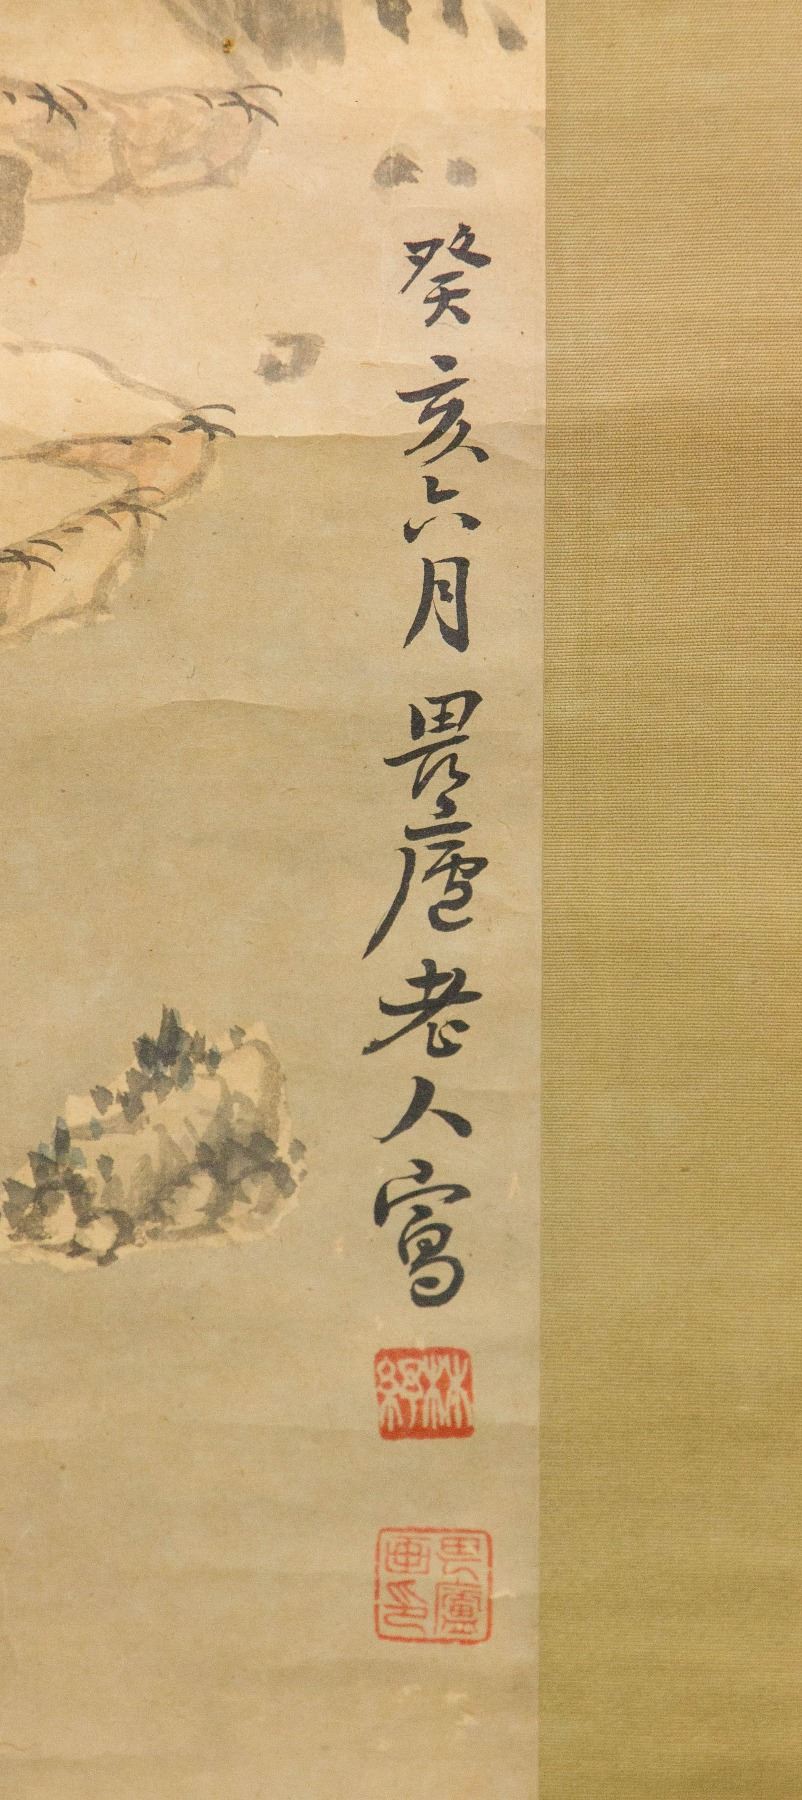 癸亥六月畏廬老人寫
林紓
畏廬
画印